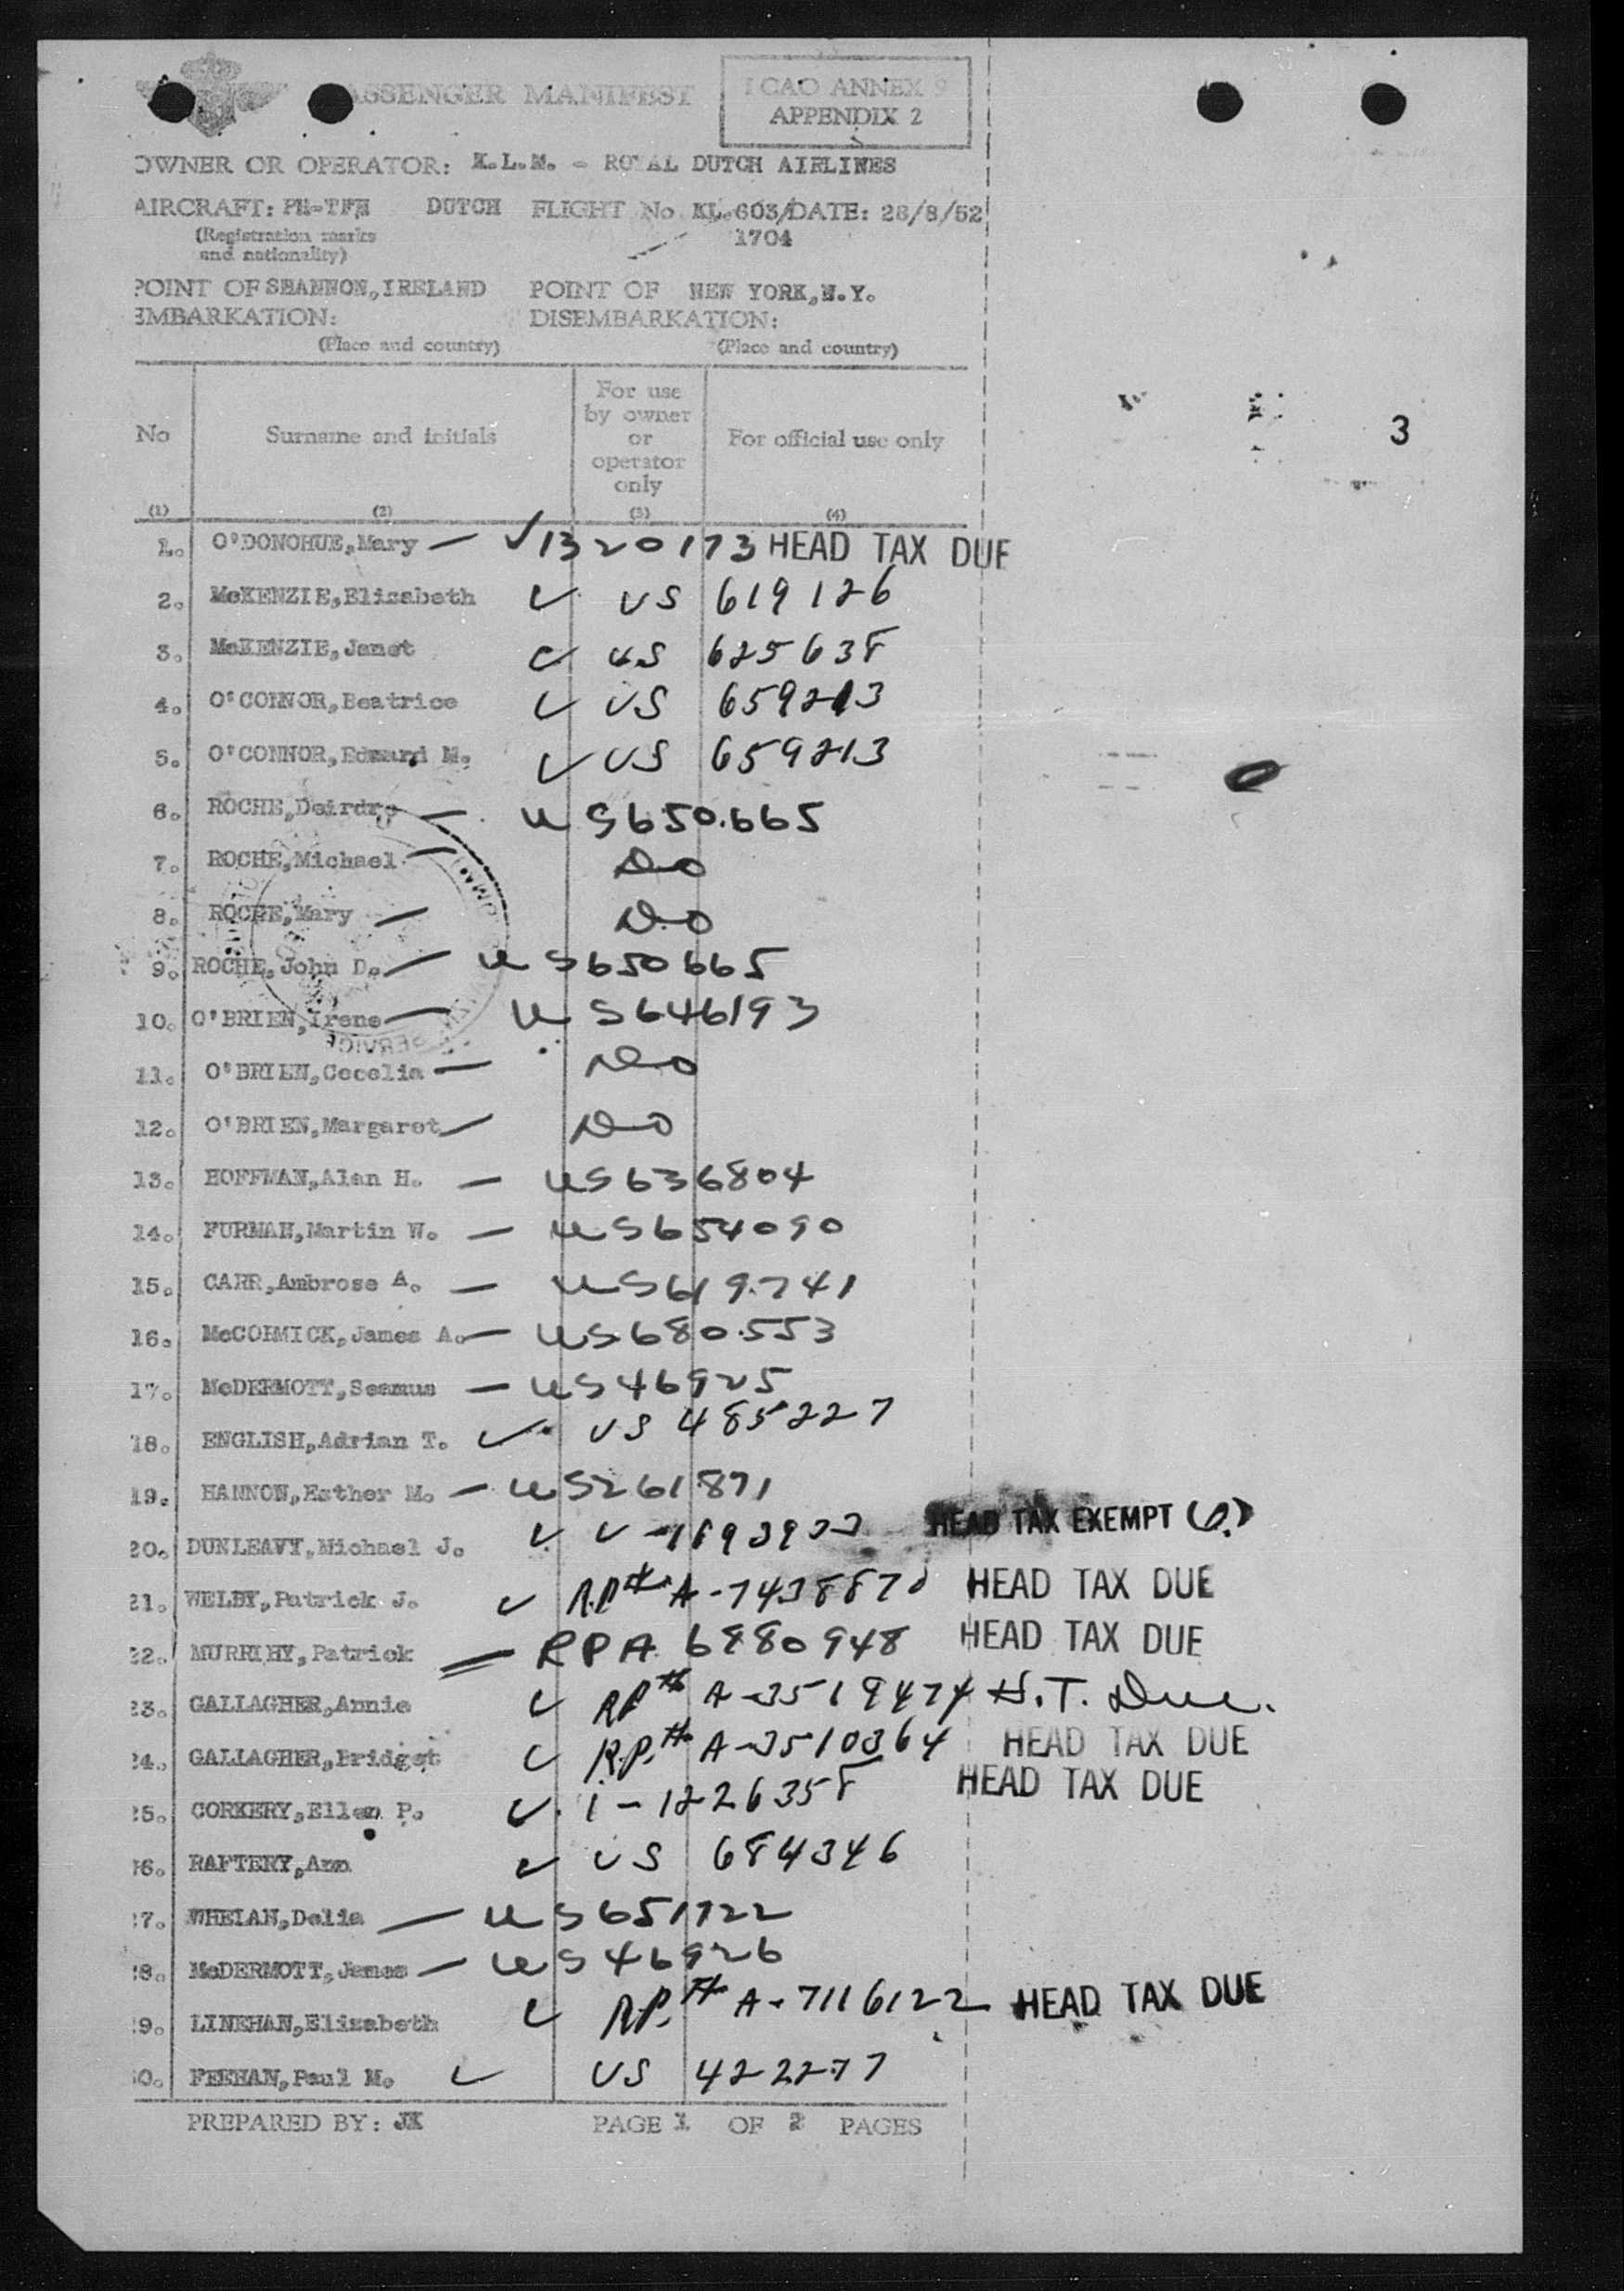 PASSENGER MANIFEST
ICAO ANNEX 9
APPENDIX 2
OWNER OR OPERATOR: K.L.M. - ROYAL DUTCH AIRLINES
AIRCRAFT: PH-TFN DUTCH FLIGHT No KL.603/ DATE: 28/8/52
(Registration marks and nationality) 1704
POINT OF SHANNON, IRELAND POINT OF NEW YORK, N.Y.
EMBARKATION: DISEMBARKATION:
(Place and country) (Place and country)
No Surname and initials For use by owner or operator only For official use only
3
(1) (2) (3) (4)
1. O'DONOHUE, Mary — ✓ 1320173 HEAD TAX DUE
2. McKENZIE, Elizabeth ✓ US 619126
3. McKENZIE, Janet ✓ US 625638
4. O'CONNOR, Beatrice ✓ US 659213
5. O'CONNOR, Edward M. ✓ US 659213
6. ROCHE, Deirdre — US 650.665
7. ROCHE, Michael — Do
8. ROCHE, Mary — Do
9. ROCHE, John D. — US 650665
10. O'BRIEN, Irene — US 646193
11. O'BRIEN, Cecelia — Do
12. O'BRIEN, Margaret — Do
13. HOFFMAN, Alan H. — US 636804
14. FURMAN, Martin W. — US 654090
15. CARR, Ambrose A. — US 619.741
16. McCORMICK, James A. — US 680.553
17. McDERMOTT, Seamus — US 46925
18. ENGLISH, Adrian T. ✓ US 485227
19. HANNON, Esther M. — US 261871
20. DUNLEAVY, Michael J. ✓ V-1893933 HEAD TAX EXEMPT
21. WELBY, Patrick J. ✓ R.P.# A-7438870 HEAD TAX DUE
22. MURRIHY, Patrick — RPA 6880948 HEAD TAX DUE
23. GALLAGHER, Annie ✓ RP# A-3519474 H.T. Due.
24. GALLAGHER, Bridget ✓ R.P.# A-3510364 HEAD TAX DUE
25. CORKERY, Ellen P. ✓ I-1226358 HEAD TAX DUE
26. RAFTERY, Ann ✓ US 684346
27. WHELAN, Delia — US 651722
28. McDERMOTT, James — US 46926
29. LINEHAN, Elizabeth ✓ R.P.# A-7116122 HEAD TAX DUE
30. FEEHAN, Paul M. ✓ US 422277
PREPARED BY: JK PAGE 1 OF 2 PAGES